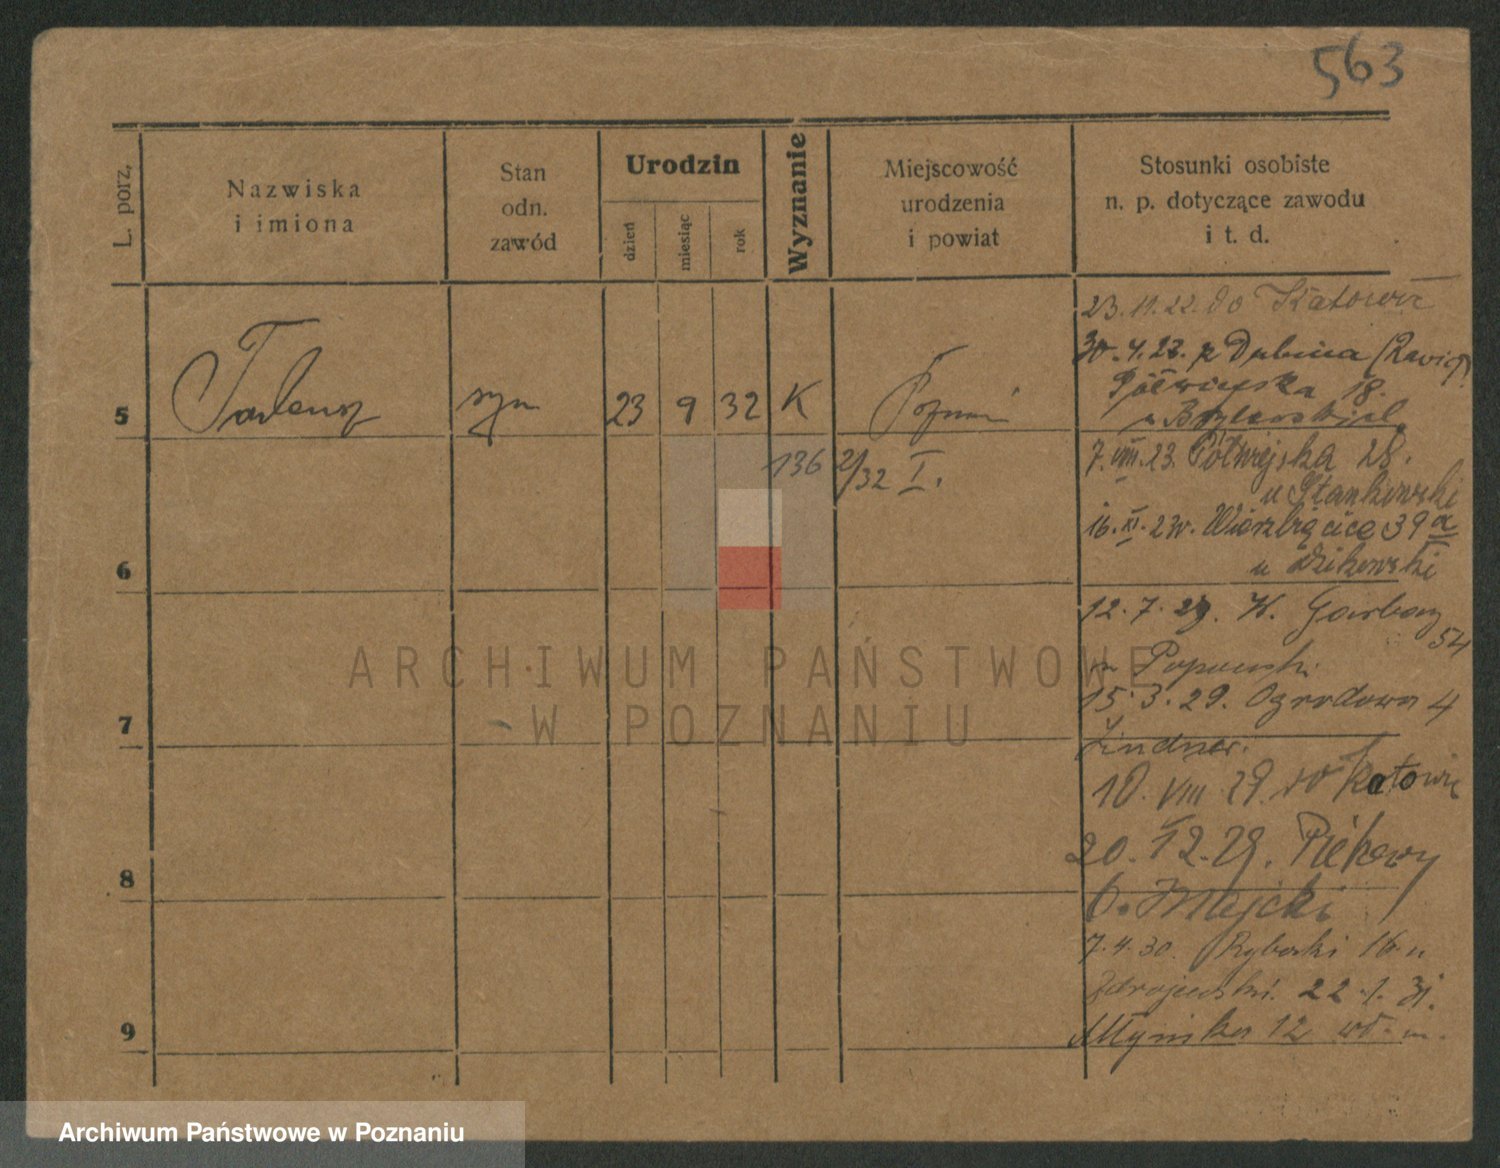 563
L. porz.
Nazwiska
i imiona
Stan
odn.
zawód
Urodzin
dzień
miesiąc
rok
Wyznanie
Miejscowość
urodzenia
i powiat
Stosunki osobiste
n. p. dotyczące zawodu
i t. d.
5
Tadeusz
syn
23
9
32
K
Poznań
136 2/32 I.
23. 11. 22. do Katowic
30. 4. 23. z Dubina
Półwiejska 18.
7. VIII. 23. Półwiejska 28.
u Stankowski
16. XI. 23r. Wierzbięcice 39a
u Dzikowski
6
12. 7. W. Garbary
54
Popowski
15. 3. 29. Ogrodowa 4
7
Lindner.
10. VIII 29. do Katowic
20. 12. 29. Piekary
8
6. Majcki
7. 4. 30. Rybaki 16 u
Zdrojewski. 22. 1. 31.
9
Młyńska 12 wł. m.
ARCHIWUM PAŃSTWOWE
W POZNANIU
Archiwum Państwowe w Poznaniu